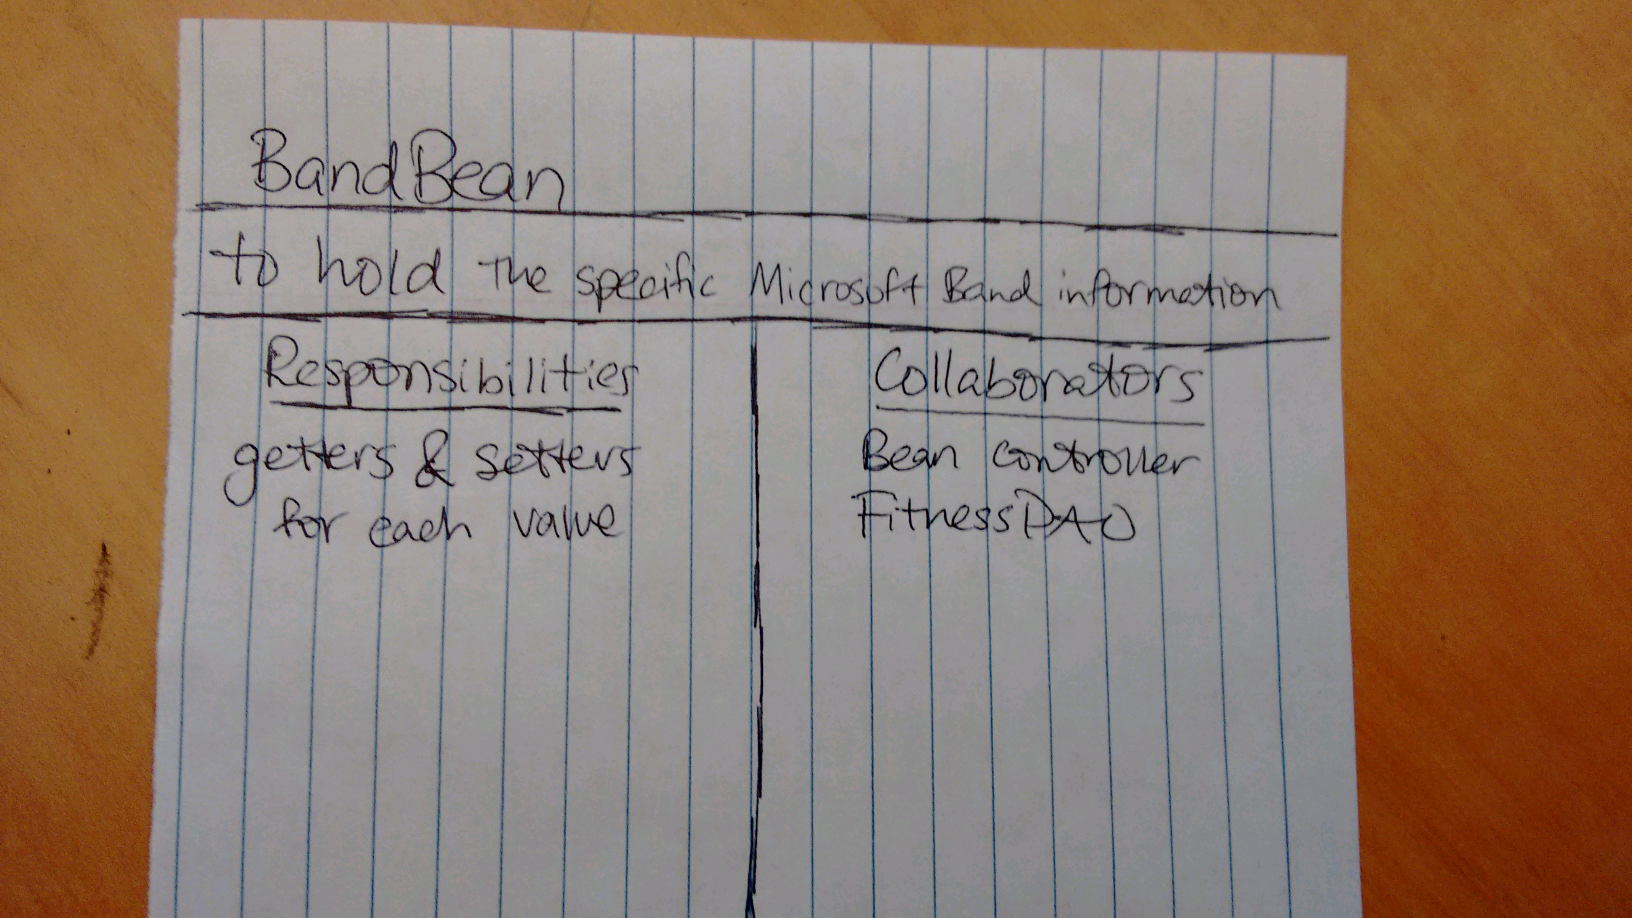 BandBean
to hold the specific Microsoft Band information
Responsibilities
getters & setters
for each value
Collaborators
Bean controller
FitnessDAO